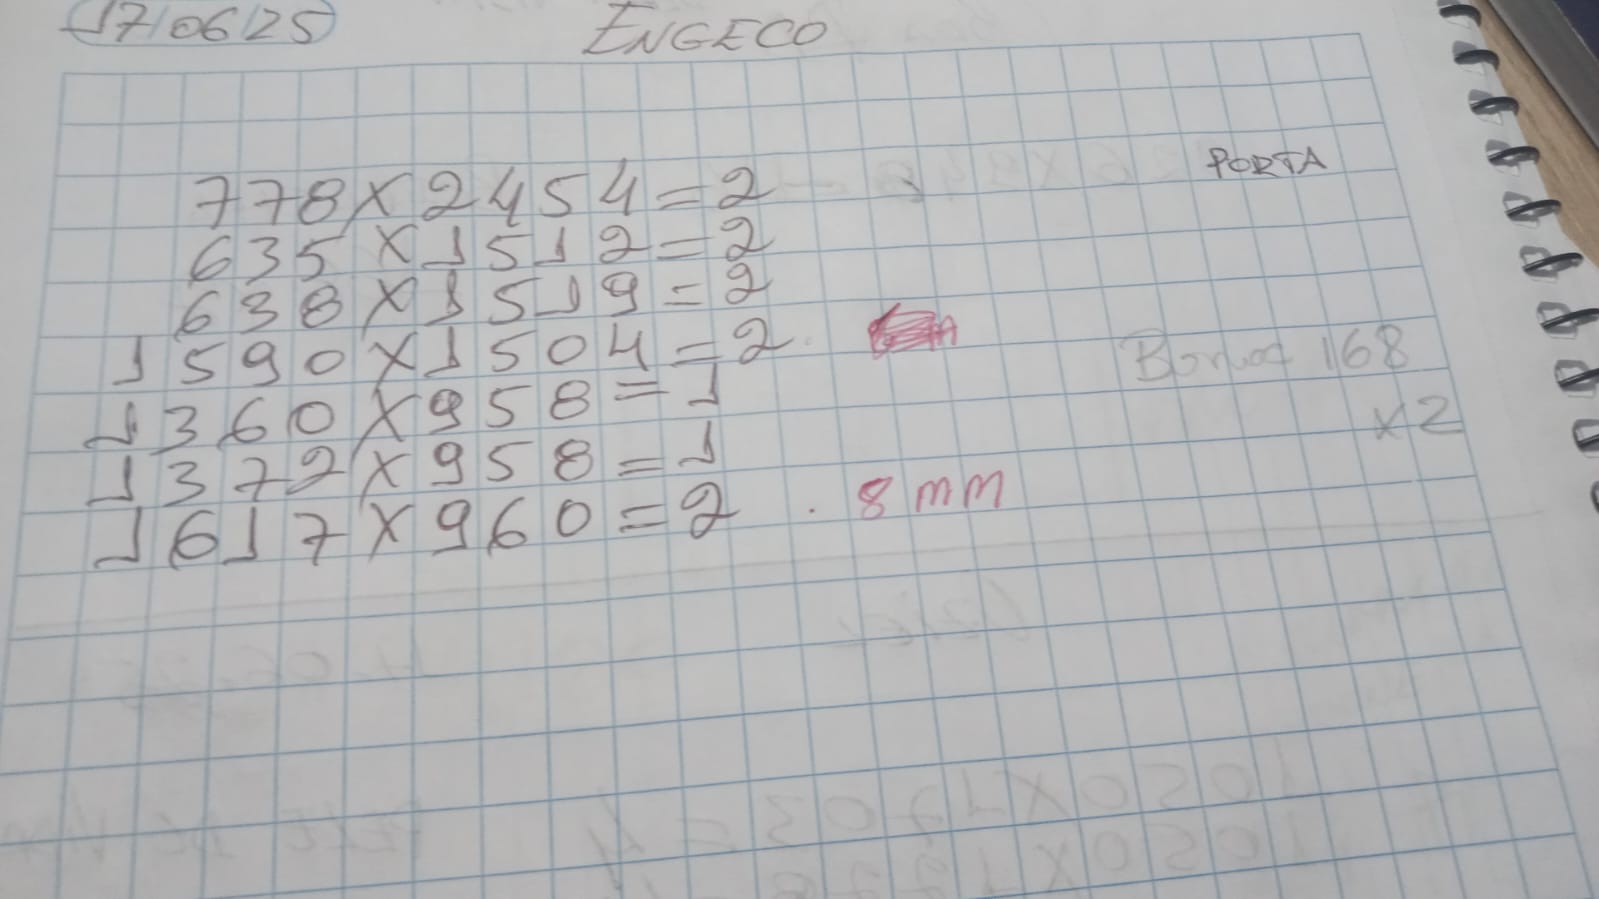 17/06/25 ENGECO
PORTA
778X2454=2
635X1512=2
638X1519=2
1590X1504=2.
168
X2
1360X958=1
1372X958=1
1617X960=2 . 8 mm